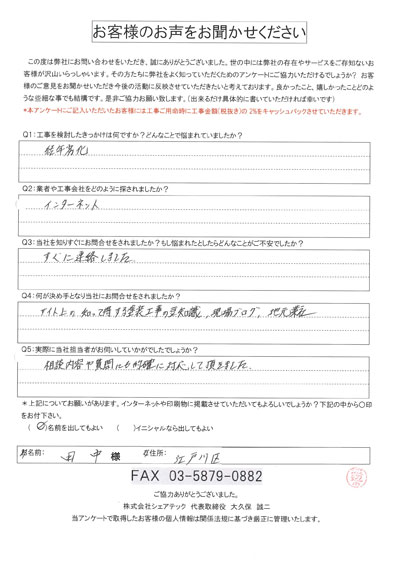 お客様のお声をお聞かせください
この度は弊社にお問い合わせをいただき、誠にありがとうございました。世の中には弊社の存在やサービスをご存知ないお
客様が沢山いらっしゃいます。その方たちに弊社をよく知っていただくためのアンケートにご協力いただけるでしょうか？ お客
様のご意見をお聞かせいただき今後の活動に反映させていただきたいと考えております。良かったこと、嬉しかったことどのよ
うな些細な事でも結構です。是非ご協力お願い致します。（出来るだけ具体的に書いていただければ幸いです）
＊本アンケートにご記入いただいたお客様には工事ご用命時に工事金額(税抜き)の 2%をキャッシュバックさせていただきます。
Q1:工事を検討したきっかけは何ですか？どんなことで悩まれていましたか？
経年劣化
Q2:業者や工事会社をどのように探されましたか？
インターネット
Q3:当社を知りすぐにお問合せをされましたか？もし悩まれたとしたらどんなことがご不安でしたか？
すぐに連絡しました
Q4:何が決め手となり当社にお問合せをされましたか？
サイト上の 知って得する塗装工事の豆知識、現場ブログ、地元業社
Q5:実際に当社担当者がお伺いしていかがでしたでしょうか？
相談内容や質問にも的確に対応して頂きました。
＊上記についてお願いがあります。インターネットや印刷物に掲載させていただいてもよろしいでしょうか？下記の中から○印
をお付下さい。
（ ○ ）名前を出してもよい （ ）イニシャルなら出してもよい
お名前： 田中 様 お住所： 江戸川区
FAX 03-5879-0882
ご協力ありがとうございました。
株式会社シェアテック 代表取締役 大久保 誠二
当アンケートで取得したお客様の個人情報は関係法規に基づき厳正に管理いたします。